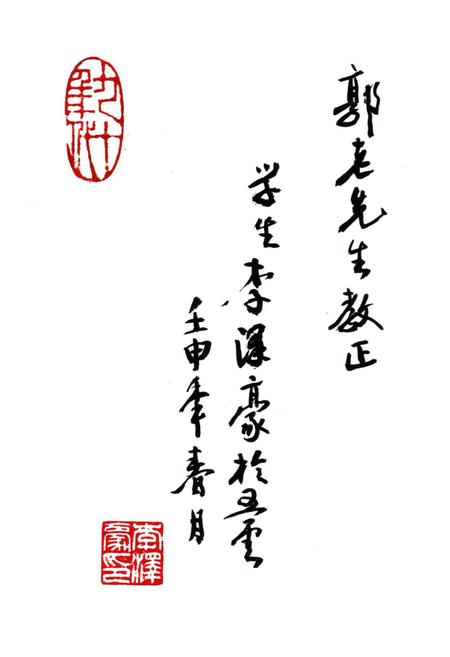 郭老先生教正
学生李泽豪於五云
壬申年春月
李泽豪印